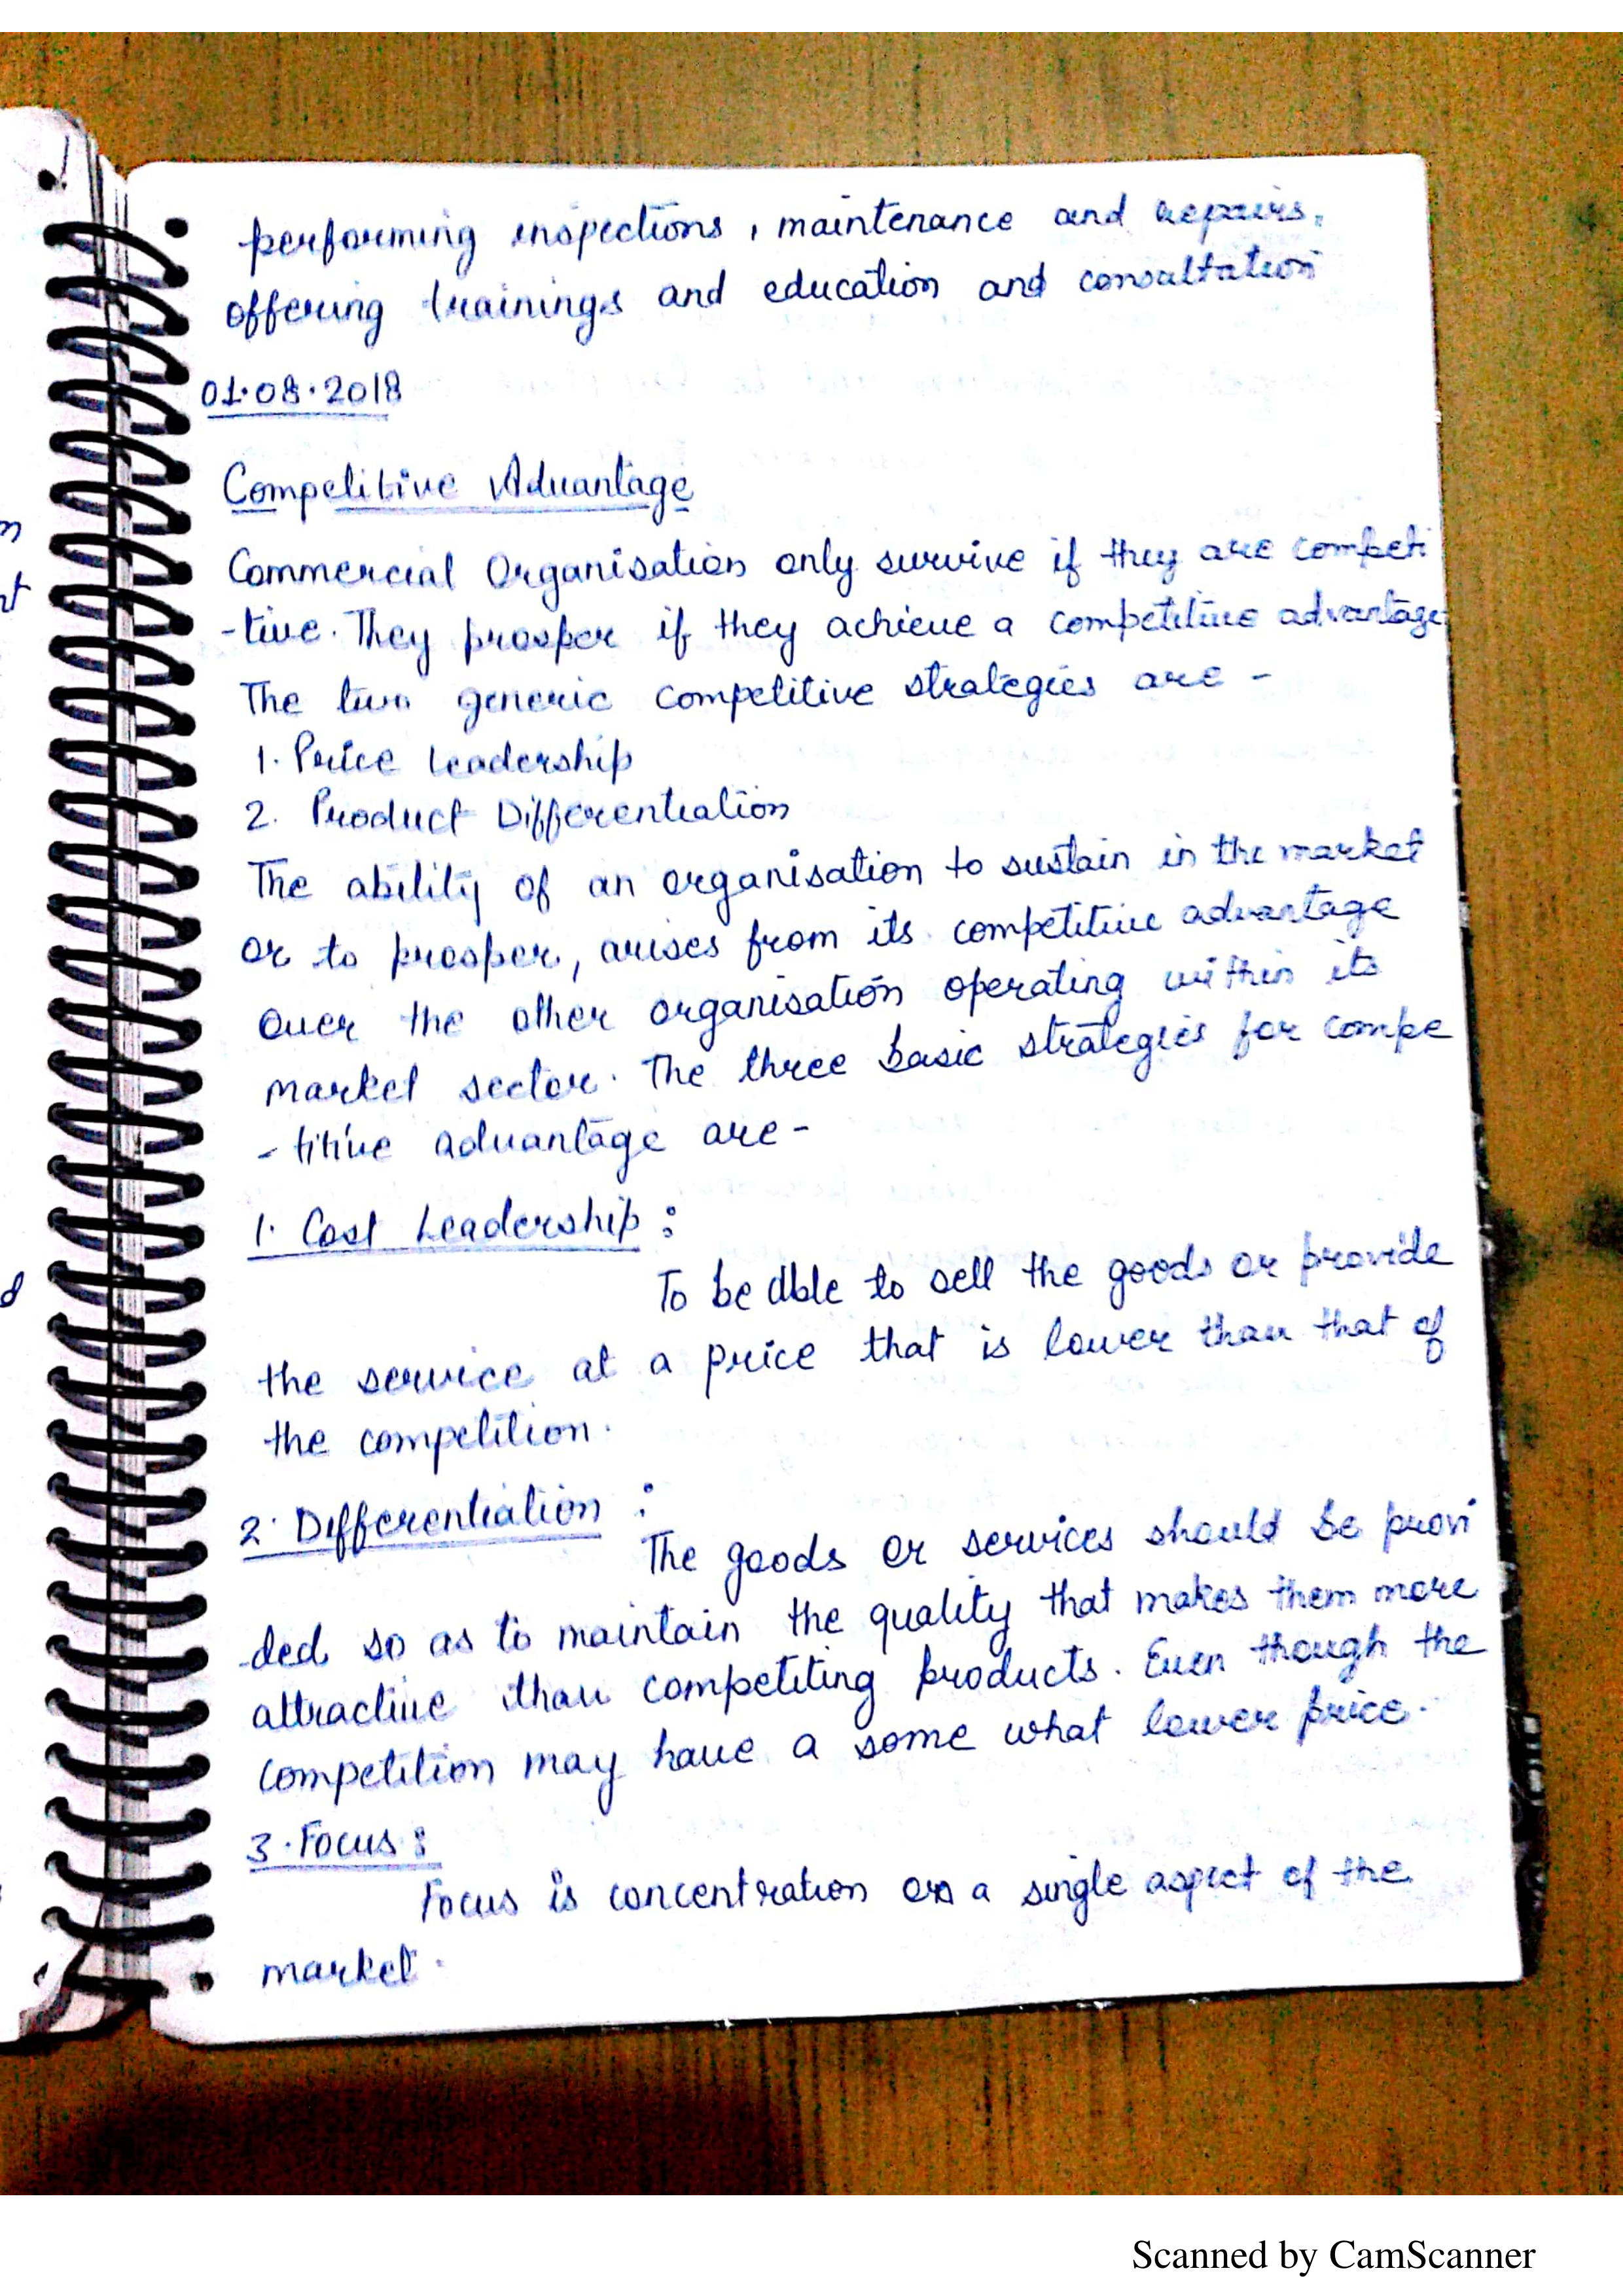 performing inspections, maintenance and repairs,
offering trainings and education and consultation
01.08.2018
Competitive Advantage
Commercial Organisation only survive if they are competi
-tive. They prosper if they achieve a competitive advantage
The two generic competitive strategies are -
1. Price Leadership
2. Product Differentiation
The ability of an organisation to sustain in the market
or to prosper, arises from its competitive advantage
over the other organisation operating within its
market sector. The three basic strategies for compe
-titive advantage are-
1. Cost Leadership :
To be able to sell the goods or provide
the service at a price that is lower than that of
the competition.
2. Differentiation :
The goods or services should be provi
-ded so as to maintain the quality that makes them more
attractive than competiting products. Even though the
competition may have a some what lower price.
3. Focus :
Focus is concentration on a single aspect of the
market.
n
nt
d
Scanned by CamScanner